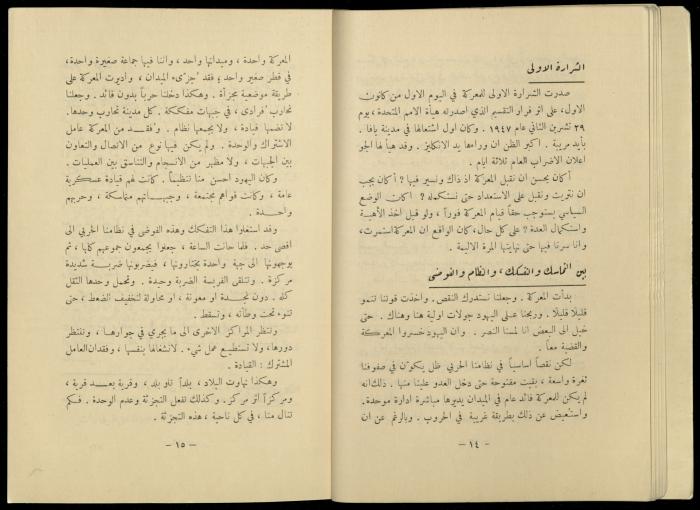 الشرارة الاولى
صدرت الشرارة الاولى للمعركة في اليوم الاول من كانون
الاول، على اثر قرار التقسيم الذي اصدرته هيأة الامم المتحدة، يوم
٢٩ تشرين الثاني عام ١٩٤٧ . وكان اول اشتعالها في مدينة يافا .
بأيد مريبة . اكبر الظن ان وراءها يد الانكليز . وقد هيأ لها الجو
اعلان الاضراب العام ثلاثة ايام .
أكان يحسن ان نقبل المعركة اذ ذاك ونسير فيها ? أكان يجب
ان نتريث ونقبل على الاستعداد حتى نستكمله ? اكان الوضع
السياسي يستوجب حقاً قيام المعركة فوراً ، ولو قبل اخذ الأهبة
واستكمال العدة ? على كل حال، كان الواقع ان المعركة استمرت،
وانا سرنا فيها حتى نهايتها المرة الاليمة .
بين التماسك والتفكك ، والنظام والفوضى
بدأت المعركة . وجعلنا نستدرك النقص . واخذت قوتنا تنمو
قليلا قليلا . وربحنا عـلى اليهود جولات اولية هنا وهناك . حتى
خيل الى البعض انا لمسنا النصر . وان اليهود خسروا المعركة
والقضية معاً .
لكن نقصاً اساسياً في نظامنا الحربي ظل يكوّن في صفوفنا
ثغرة واسعة ، بقيت مفتوحة حتى دخل العدو علينا منها . ذلك انه
لم يكن للمعركة قائد عام في الميدان يديرها مباشرة ادارة موحدة.
واستعيض عن ذلك بطريقة غريبة في الحروب . وبالرغم عن ان
— ١٤ —
المعركة واحدة ، وميدانها واحد ، واننا فيها جماعة صغيرة واحدة،
في قطر صغير واحد ; فقد 'جزىء الميدان ، واديرت المعركة على
طريقة موضعية مجزأة . وهكذا دخلنا حرباً بدون قائد . وجعلنا
نحارب 'فرادى ، في جبهات مفككة . كل مدينة تحارب وحدها.
لا تضمها قيادة ، ولا يجمعها نظام . و'فقـد من المعركة عامل
الاشتراك والوحدة . ولم يكن فيها نوع من الاتصال والتعاون
بين الجبهات ، ولا مظهر من الانسجام والتناسق بين العمليات .
وكان اليهود احسن منا تنظيماً . كانت لهم قيادة عسكرية
عامة ، وكانت قواهم مجتمعة ، وجبهـاتهم متماسكة ، وحربهم
واحـدة .
وقد استغلوا هذا التفكك وهذه الفوضى في نظامنا الحربي الى
اقصى حد . فلما حانت الساعة ، جعلوا يجمعون جموعهم كلها ، ثم
يوجهونها الى جهة واحدة يختارونها ، فيضربونها ضربـة شديدة
مركزة . وتتلقى الفريسة الضربة وحيدة . وتحمل وحدها الثقل
كله . دون نجـدة او معونة ، او محاولة لتخفيف الضغط ، حتى
تنوء تحت وطأته ، وتسقط .
وتنظر المراكز الاخرى الى ما يجري في جوارها ، وتنتظر
دورها، ولا تستطيع عمل شيء . لانشغالها بنفسها ، وفقدان العامل
المشترك : القيادة .
وهكذا تهاوت البلاد ، بلداً تلو بلد ، وقرية بعـد قرية ،
ومركزاً اثر مركز. وكذلك تفعل التجزئة وعدم الوحدة . فكم
تنال منا ، في كل ناحية ، هذه التجزئة .
— ١٥ —